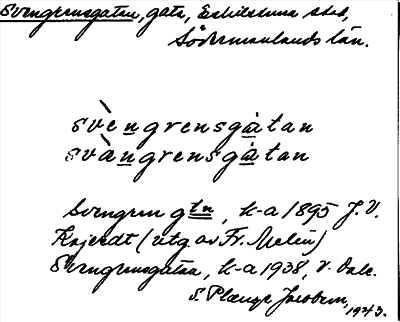 Svengrensgatan, gata, Eskilstuna stad,
Södermanlands län.
svèngrensgàtan
svàngrensgàtan
Svengren gtn, k-a 1895 J. V.
(utg. av Fr. Melin)
Svengrensgatan, k-a 1938, v.
S. Plænge Jacobson, 1943.